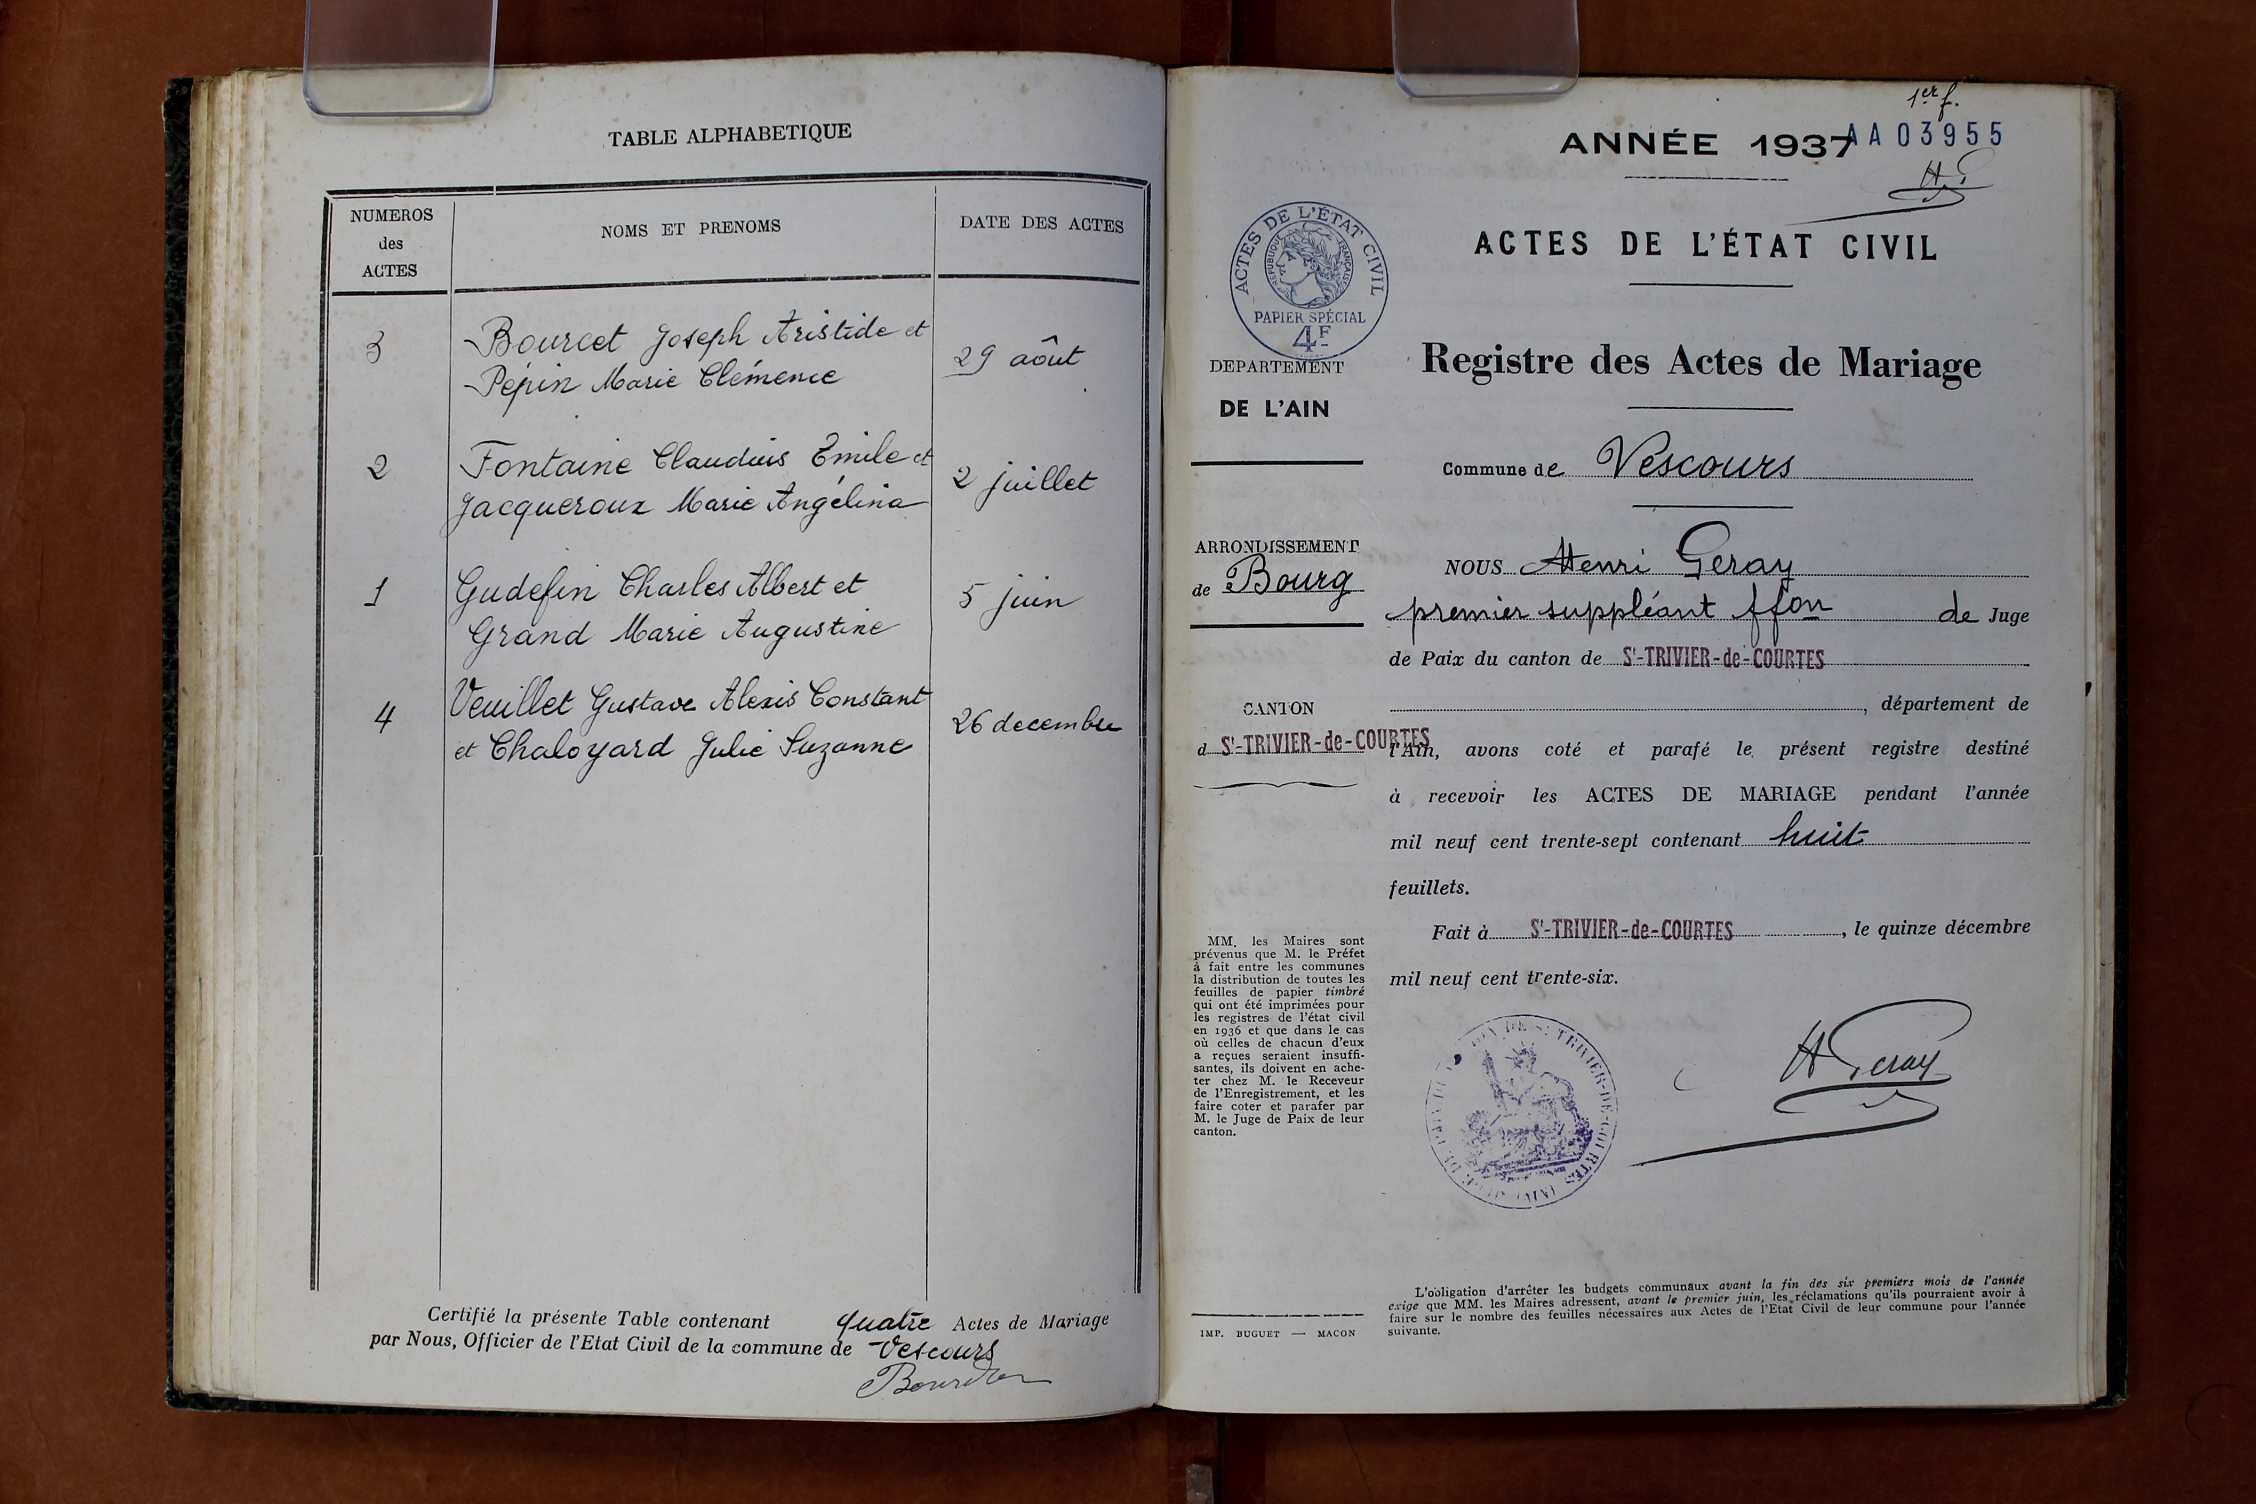 TABLE ALPHABETIQUE
NUMEROS
des
ACTES
NOMS ET PRENOMS
DATE DES ACTES
3
Bourcet Joseph Aristide et
Pépin Marie Clémence
29 août
2
Fontaine Claudius Emile et
Jacqueroux Marie Angélina
2 juillet
1
Gudefin Charles Albert et
Grand Marie Augustine
5 juin
4
Veuillet Gustave Alexis Constant
et Chaloyard Julie Suzanne
26 decembre
Certifié la présente Table contenant quatre Actes de Mariage
par Nous, Officier de l'Etat Civil de la commune de Vescours
1er f.
ANNÉE 1937
AA03955
H G
ACTES DE L'ÉTAT CIVIL
RÉPUBLIQUE FRANÇAISE
PAPIER SPÉCIAL
4F
DEPARTEMENT
DE L'AIN
ARRONDISSEMENT
de Bourg
CANTON
d St-TRIVIER-de-COURTES
MM. les Maires sont
prévenus que M. le Préfet
à fait entre les communes
la distribution de toutes les
feuilles de papier timbré
qui ont été imprimées pour
les registres de l'état civil
en 1936 et que dans le cas
où celles de chacun d'eux
a reçues seraient insuffi-
santes, ils doivent en ache-
ter chez M. le Receveur
de l'Enregistrement, et les
faire coter et parafer par
M. le Juge de Paix de leur
canton.
IMP. BUGUET — MACON
ACTES DE L'ÉTAT CIVIL
Registre des Actes de Mariage
Commune de Vescours
NOUS Henri Geray
premier suppléant ffon de Juge
de Paix du canton de St-TRIVIER-de-COURTES
, département de
l'Ain, avons coté et parafé le présent registre destiné
à recevoir les ACTES DE MARIAGE pendant l'année
mil neuf cent trente-sept contenant huit
feuillets.
Fait à St-TRIVIER-de-COURTES, le quinze décembre
mil neuf cent trente-six.
H Geray
L'obligation d'arrêter les budgets communaux avant la fin des six premiers mois de l'année
exige que MM. les Maires adressent, avant le premier juin, les réclamations qu'ils pourraient avoir à
faire sur le nombre des feuilles nécessaires aux Actes de l'Etat Civil de leur commune pour l'année
suivante.